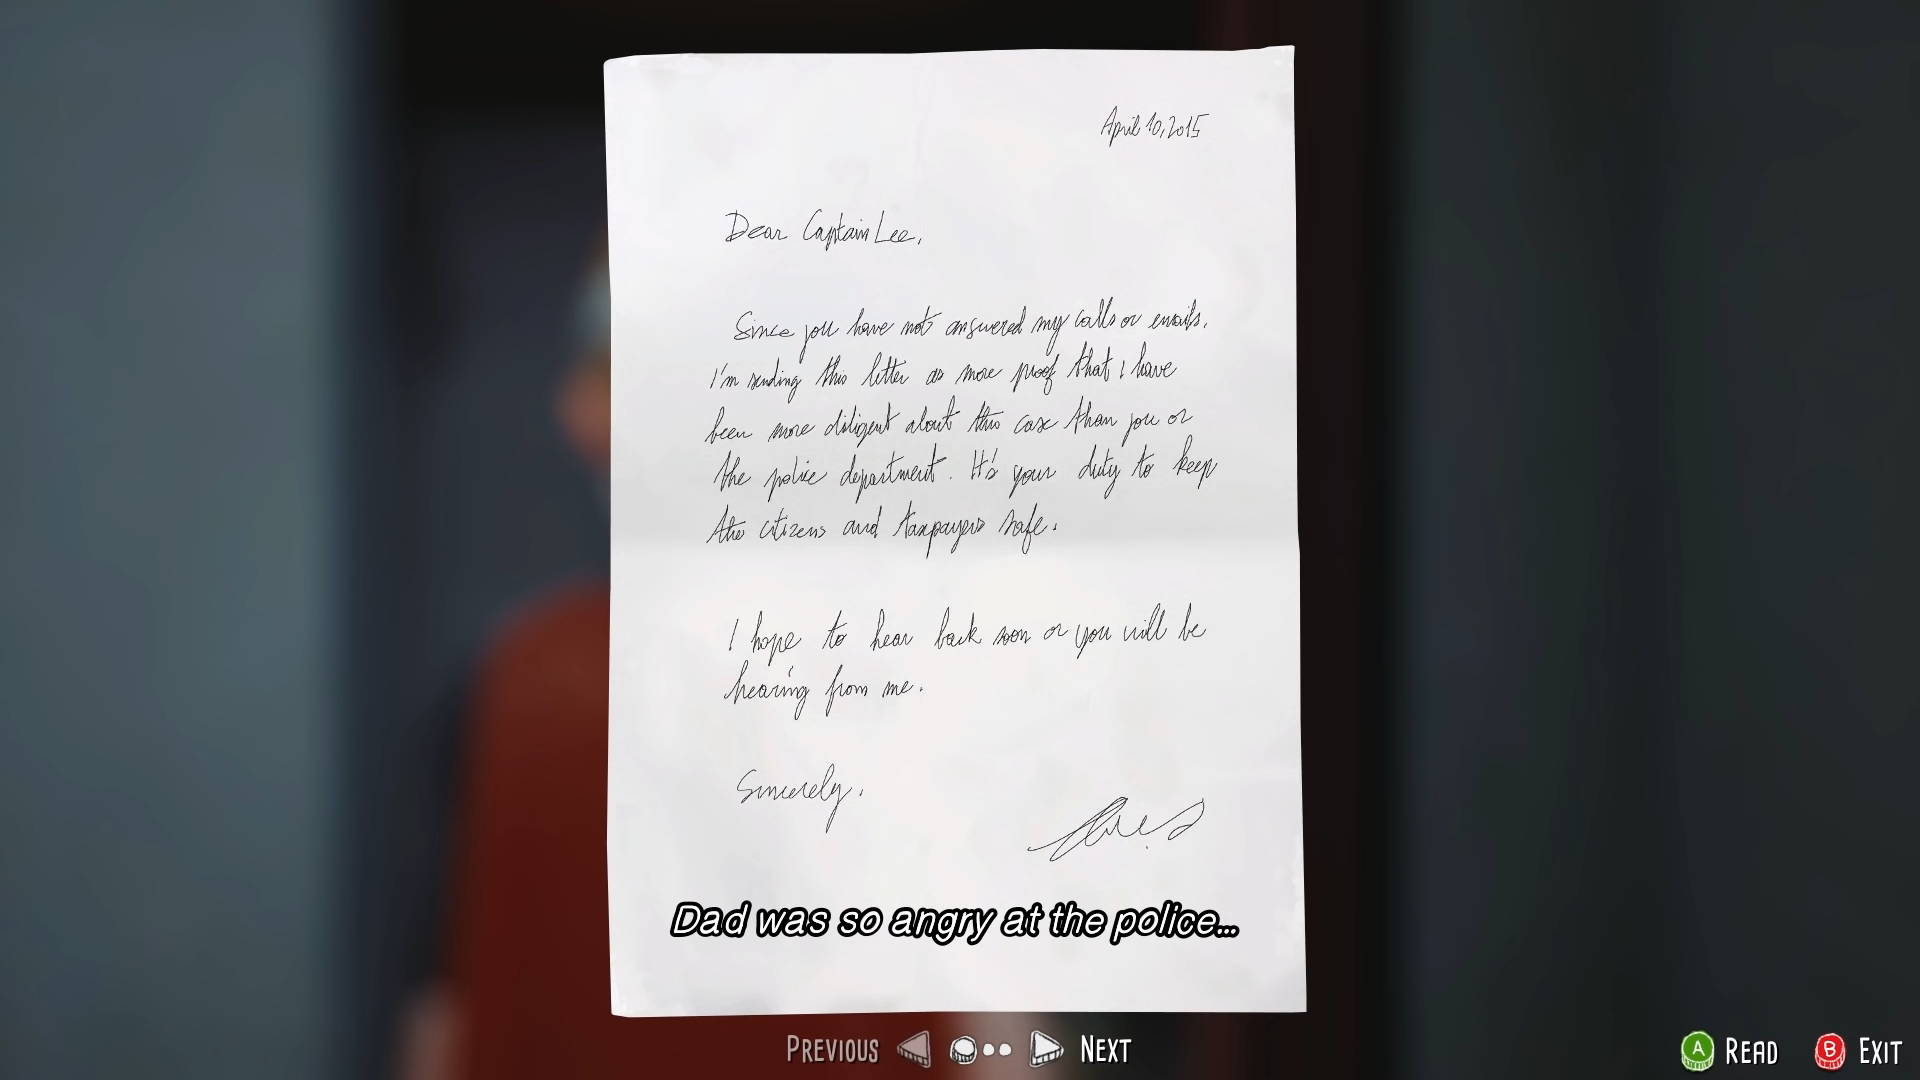 April 10, 2015
Dear Captain Lee,
Since you have not answered my calls or emails,
I'm sending this letter as more proof that I have
been more diligent about this case than you or
the police department. It's your duty to keep
the citizens and taxpayers safe.
I hope to hear back soon or you will be
hearing from me.
Sincerely,
Dad was so angry at the police...
PREVIOUS NEXT
A READ B EXIT